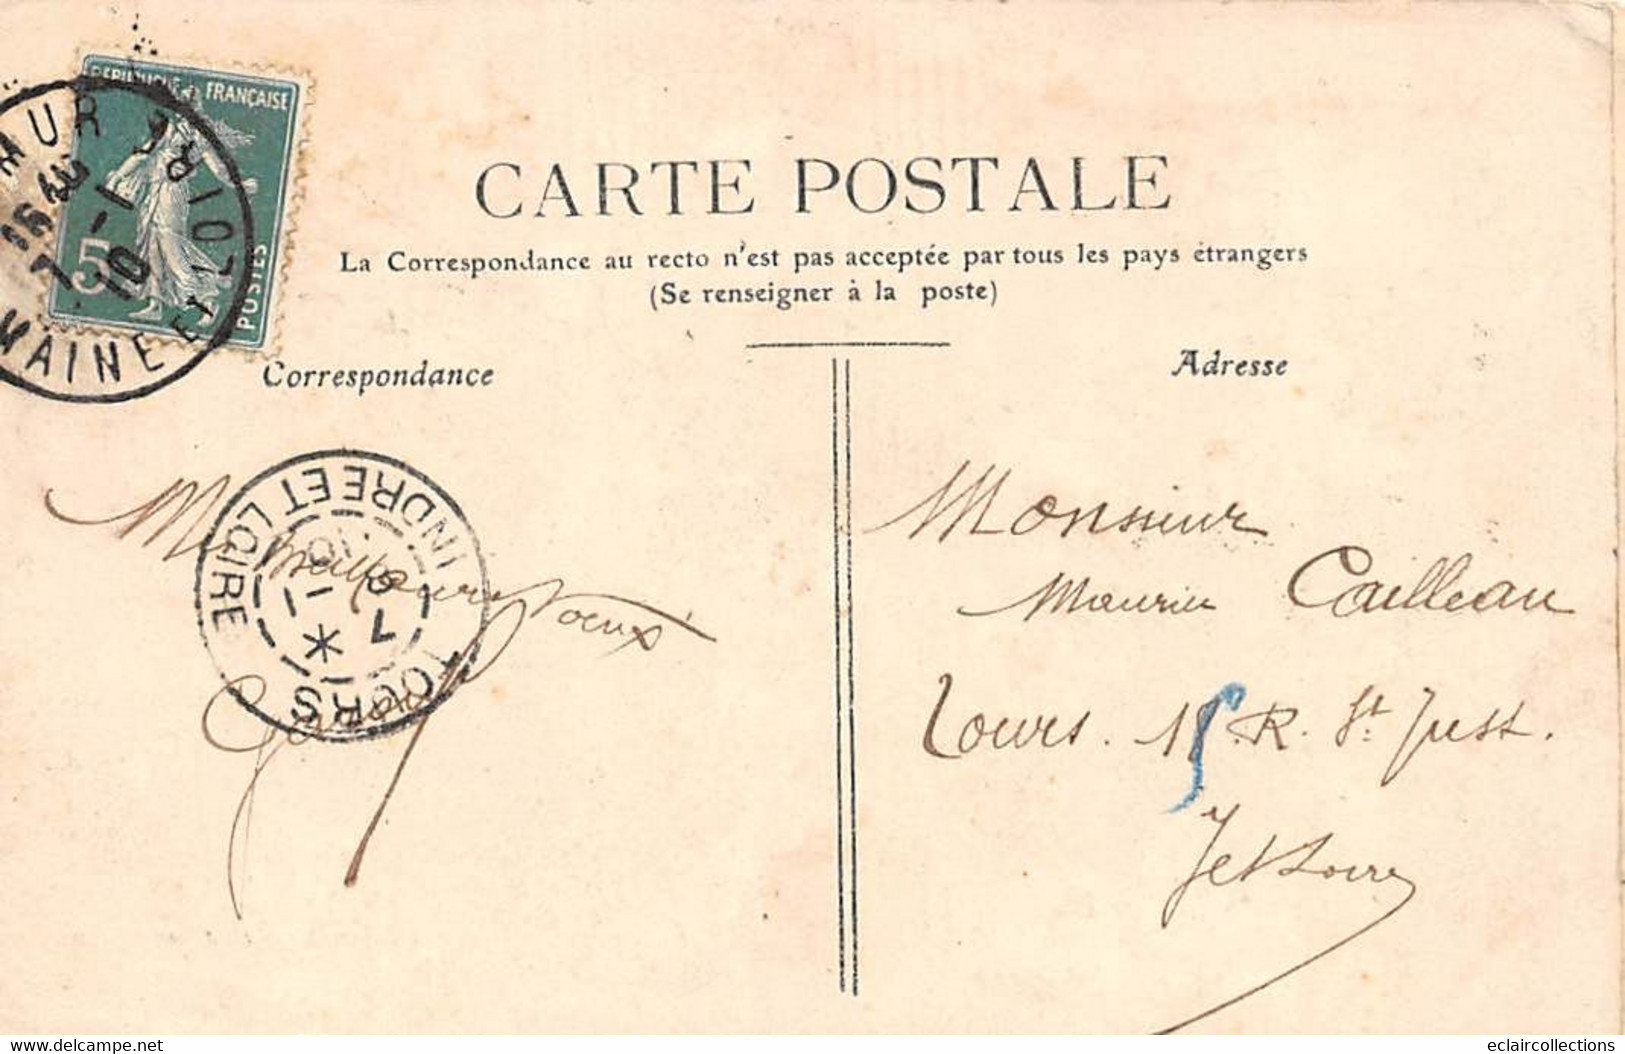 RÉPUBLIQUE FRANÇAISE
5
POSTES
MUR
MAINE ET LOIRE
7 -1
10
CARTE POSTALE
La Correspondance au recto n'est pas acceptée par tous les pays étrangers
(Se renseigner à la poste)
Correspondance
Adresse
TOURS
INDRE ET LOIRE
Meilleurs Voeux
Monsieur
Maurice Cailleau
Tours. 15 R. St. Just.
I et Loire
www.delcampe.net
eclaircollections